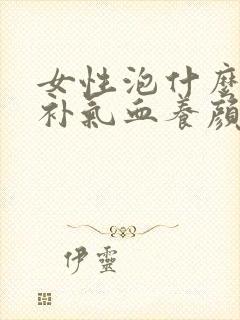 女性泡什麼
补氣血養顔
伊靈